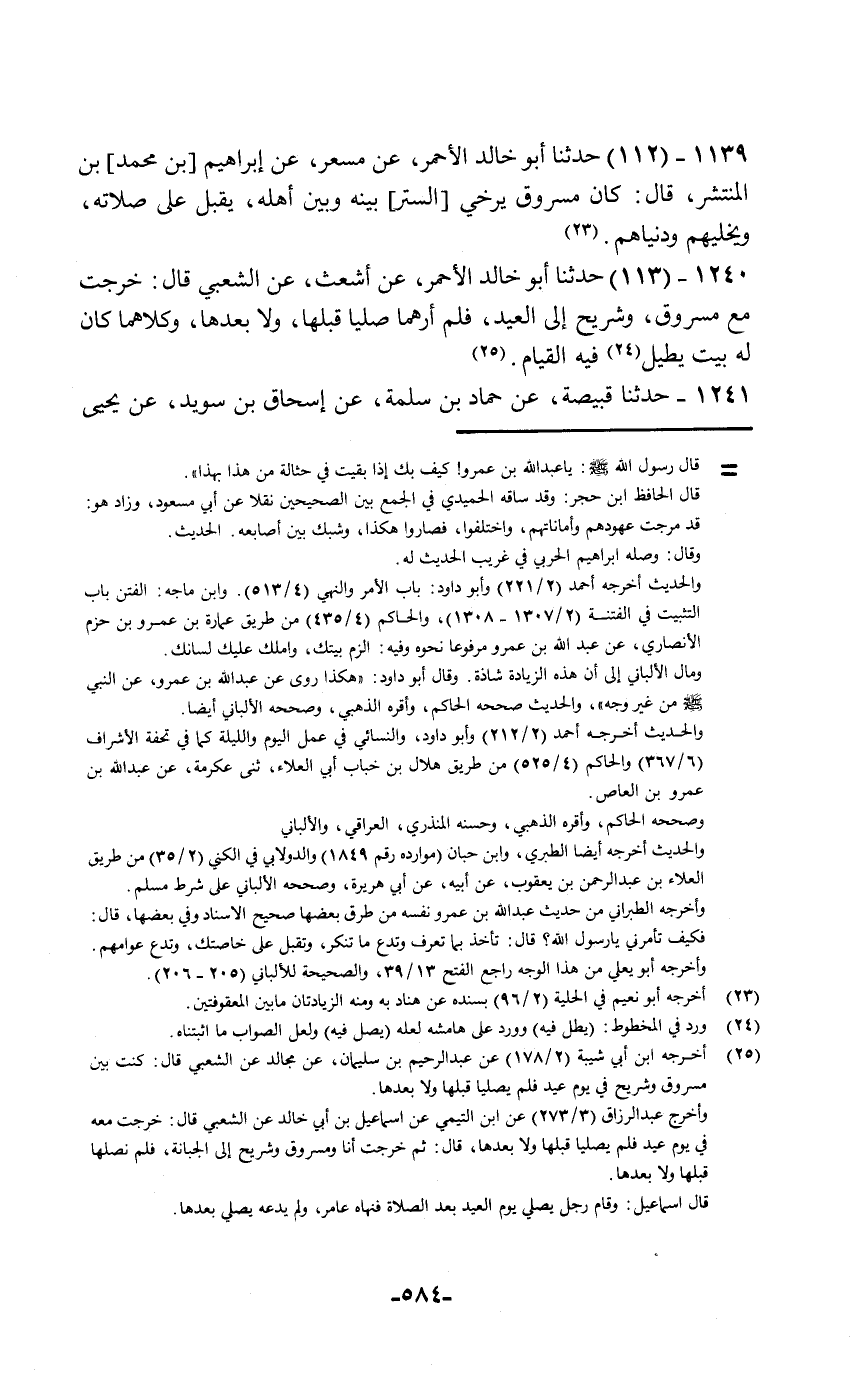 ١١٣٩ - (١١٢) حدثنا أبو خالد الأحمر، عن مسعر، عن إبراهيم [بن محمد] بن
المنتشر، قال: كان مسروق يرخي [الستر] بينه وبين أهله، يقبل على صلاته،
ويخليهم ودنياهم. (٢٣)
١٢٤٠ - (١١٣) حدثنا أبو خالد الأحمر، عن أشعث، عن الشعبي قال: خرجت
مع مسروق، وشريح إلى العيد، فلم أرهما صليا قبلها، ولا بعدها، وكلاهما كان
له بيت يطيل(٢٤) فيه القيام. (٢٥)
١٢٤١ - حدثنا قبيصة، عن حماد بن سلمة، عن إسحاق بن سويد، عن يحيى
= قال رسول الله ﷺ: ياعبدالله بن عمرو! كيف بك إذا بقيت في حثالة من هذا بهذا».
قال الحافظ ابن حجر: وقد ساقه الحميدي في الجمع بين الصحيحين نقلا عن أبي مسعود، وزاد هو:
قد مرجت عهودهم وأماناتهم، واختلفوا، فصاروا هكذا، وشبك بين أصابعه. الحديث.
وقال: وصله ابراهيم الحربي في غريب الحديث له.
والحديث أخرجه أحمد (٢٢١/٢) وأبو داود: باب الأمر والنهي (٥١٣/٤). وابن ماجه: الفتن باب
التثبيت في الفتنة (١٣٠٧/٢ - ١٣٠٨)، والحاكم (٤٣٥/٤) من طريق عمارة بن عمرو بن حزم
الأنصاري، عن عبد الله بن عمرو مرفوعا نحوه وفيه: الزم بيتك، واملك عليك لسانك.
ومال الألباني إلى أن هذه الزيادة شاذة. وقال أبو داود: «هكذا روى عن عبدالله بن عمرو، عن النبي
ﷺ من غير وجه»، والحديث صححه الحاكم، وأقره الذهبي، وصححه الألباني أيضا.
والحديث أخرجه أحمد (٢١٢/٢) وأبو داود، والنسائي في عمل اليوم والليلة كما في تحفة الأشراف
(٣٦٧/٦) والحاكم (٥٢٥/٤) من طريق هلال بن خباب أبي العلاء، ثنى عكرمة، عن عبدالله بن
عمرو بن العاص.
وصححه الحاكم، وأقره الذهبي، وحسنه المنذري، العراقي، والألباني
والحديث أخرجه أيضا الطبري، وابن حبان (موارده رقم ١٨٤٩) والدولابي في الكني (٣٥/٢) من طريق
العلاء بن عبدالرحمن بن يعقوب، عن أبيه، عن أبي هريرة، وصححه الألباني على شرط مسلم.
وأخرجه الطبراني من حديث عبدالله بن عمرو نفسه من طرق بعضها صحيح الاسناد وفي بعضها، قال:
فكيف تأمرني يارسول الله؟ قال: تأخذ بما تعرف وتدع ما تنكر، وتقبل على خاصتك، وتدع عوامهم.
وأخرجه أبو يعلي من هذا الوجه راجع الفتح ٣٩/١٣، والصحيحة للألباني (٢٠٥ - ٢٠٦).
(٢٣) أخرجه أبو نعيم في الحلية (٩٦/٢) بسنده عن هناد به ومنه الزيادتان مابين المعقوفتين.
(٢٤) ورد في المخطوط: (يطل فيه) وورد على هامشه لعله (يصل فيه) ولعل الصواب ما اثبتناه.
(٢٥) أخرجه ابن أبي شيبة (١٧٨/٢) عن عبدالرحيم بن سليمان، عن مجالد عن الشعبي قال: كنت بين
مسروق وشريح في يوم عيد فلم يصليا قبلها ولا بعدها.
وأخرج عبدالرزاق (٢٧٣/٣) عن ابن التيمي عن اسماعيل بن أبي خالد عن الشعبي قال: خرجت معه
في يوم عيد فلم يصليا قبلها ولا بعدها، قال: ثم خرجت أنا ومسروق وشريح إلى الجبانة، فلم نصلها
قبلها ولا بعدها.
قال اسماعيل: وقام رجل يصلي يوم العيد بعد الصلاة فنهاه عامر، ولم يدعه يصلي بعدها.
-٥٨٤-